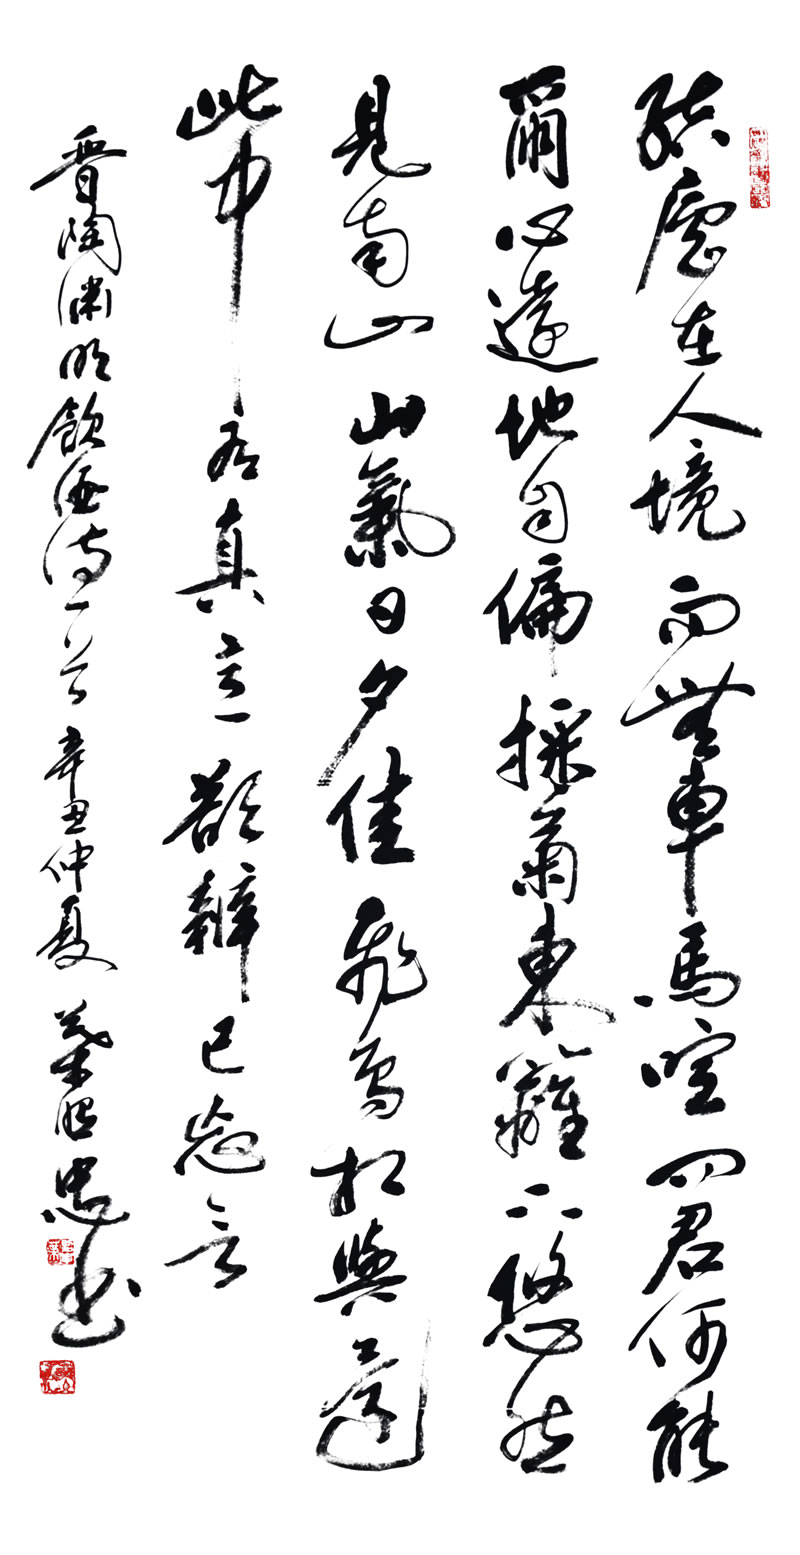 結廬在人境而無車馬喧问君何能
爾心遠地自偏採菊東籬下悠然
見南山山氣日夕佳飛鳥相與還
此中有真意欲辨已忘言
晋陶渊明飲酒诗一首辛丑仲夏葉昭忠书